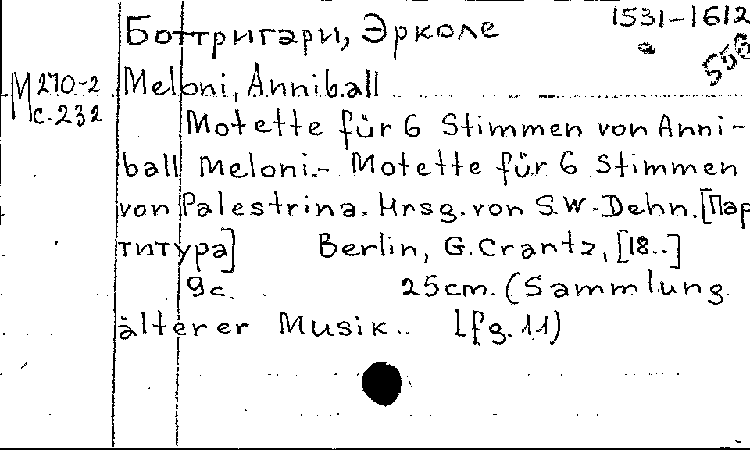 Боттригари, Эрколе 1531-1612
556
М 270-2 Meloni, Anniball
с.232
Motette für 6 Stimmen von Anni-
ball Meloni.- Motette für 6 Stimmen
von Palestrina. Hrsg. von S.W. Dehn. [Пар
титура] Berlin, G. Crantz, [18..]
9с. 25cm. (Sammlung
älterer Musik.. Lfg. 11)